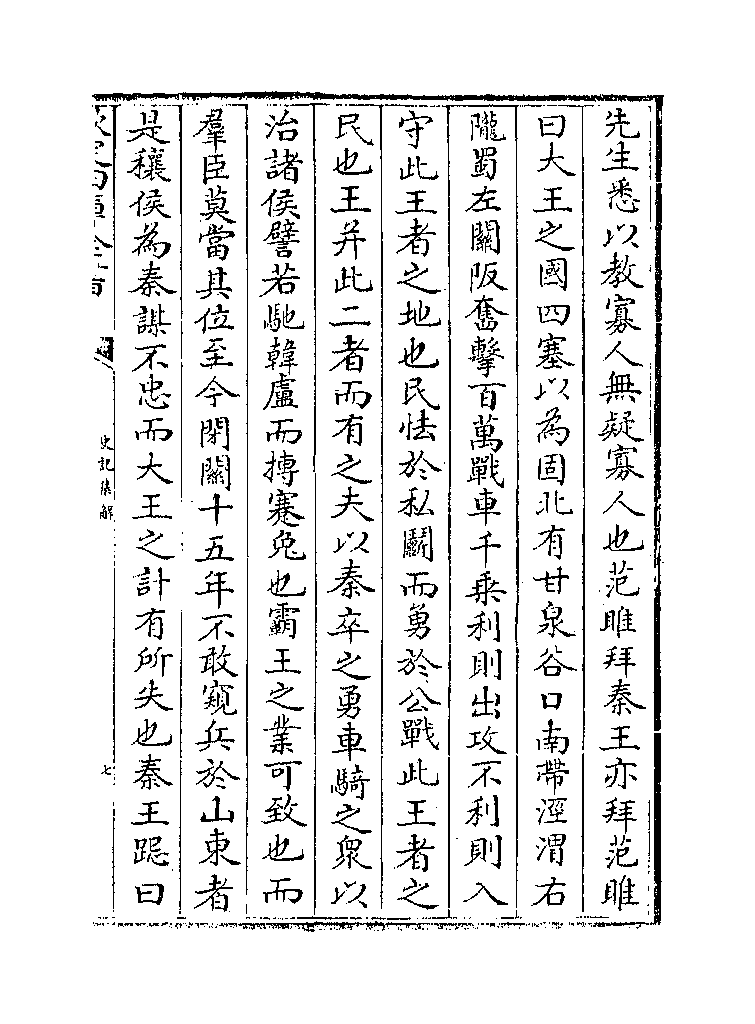 先生悉以教寡人無疑寡人也范雎拜秦王亦拜范雎
曰大王之國四塞以為固北有甘泉谷口南帶涇渭右
隴蜀左關阪奮擊百萬戰車千乗利則出攻不利則入
守此王者之地也民怯於私鬬而勇於公戰此王者之
民也王并此二者而有之夫以秦卒之勇車騎之衆以
治諸侯譬若馳韓盧而搏蹇兔也霸王之業可致也而
羣臣莫當其位至今閉關十五年不敢窺兵於山東者
是穰侯為秦謀不忠而大王之計有所失也秦王跽曰
史記集解
七